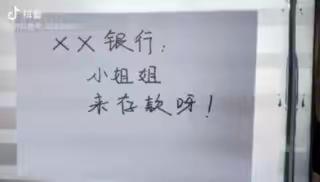 抖音
××银行：
小姐姐
来存款呀！